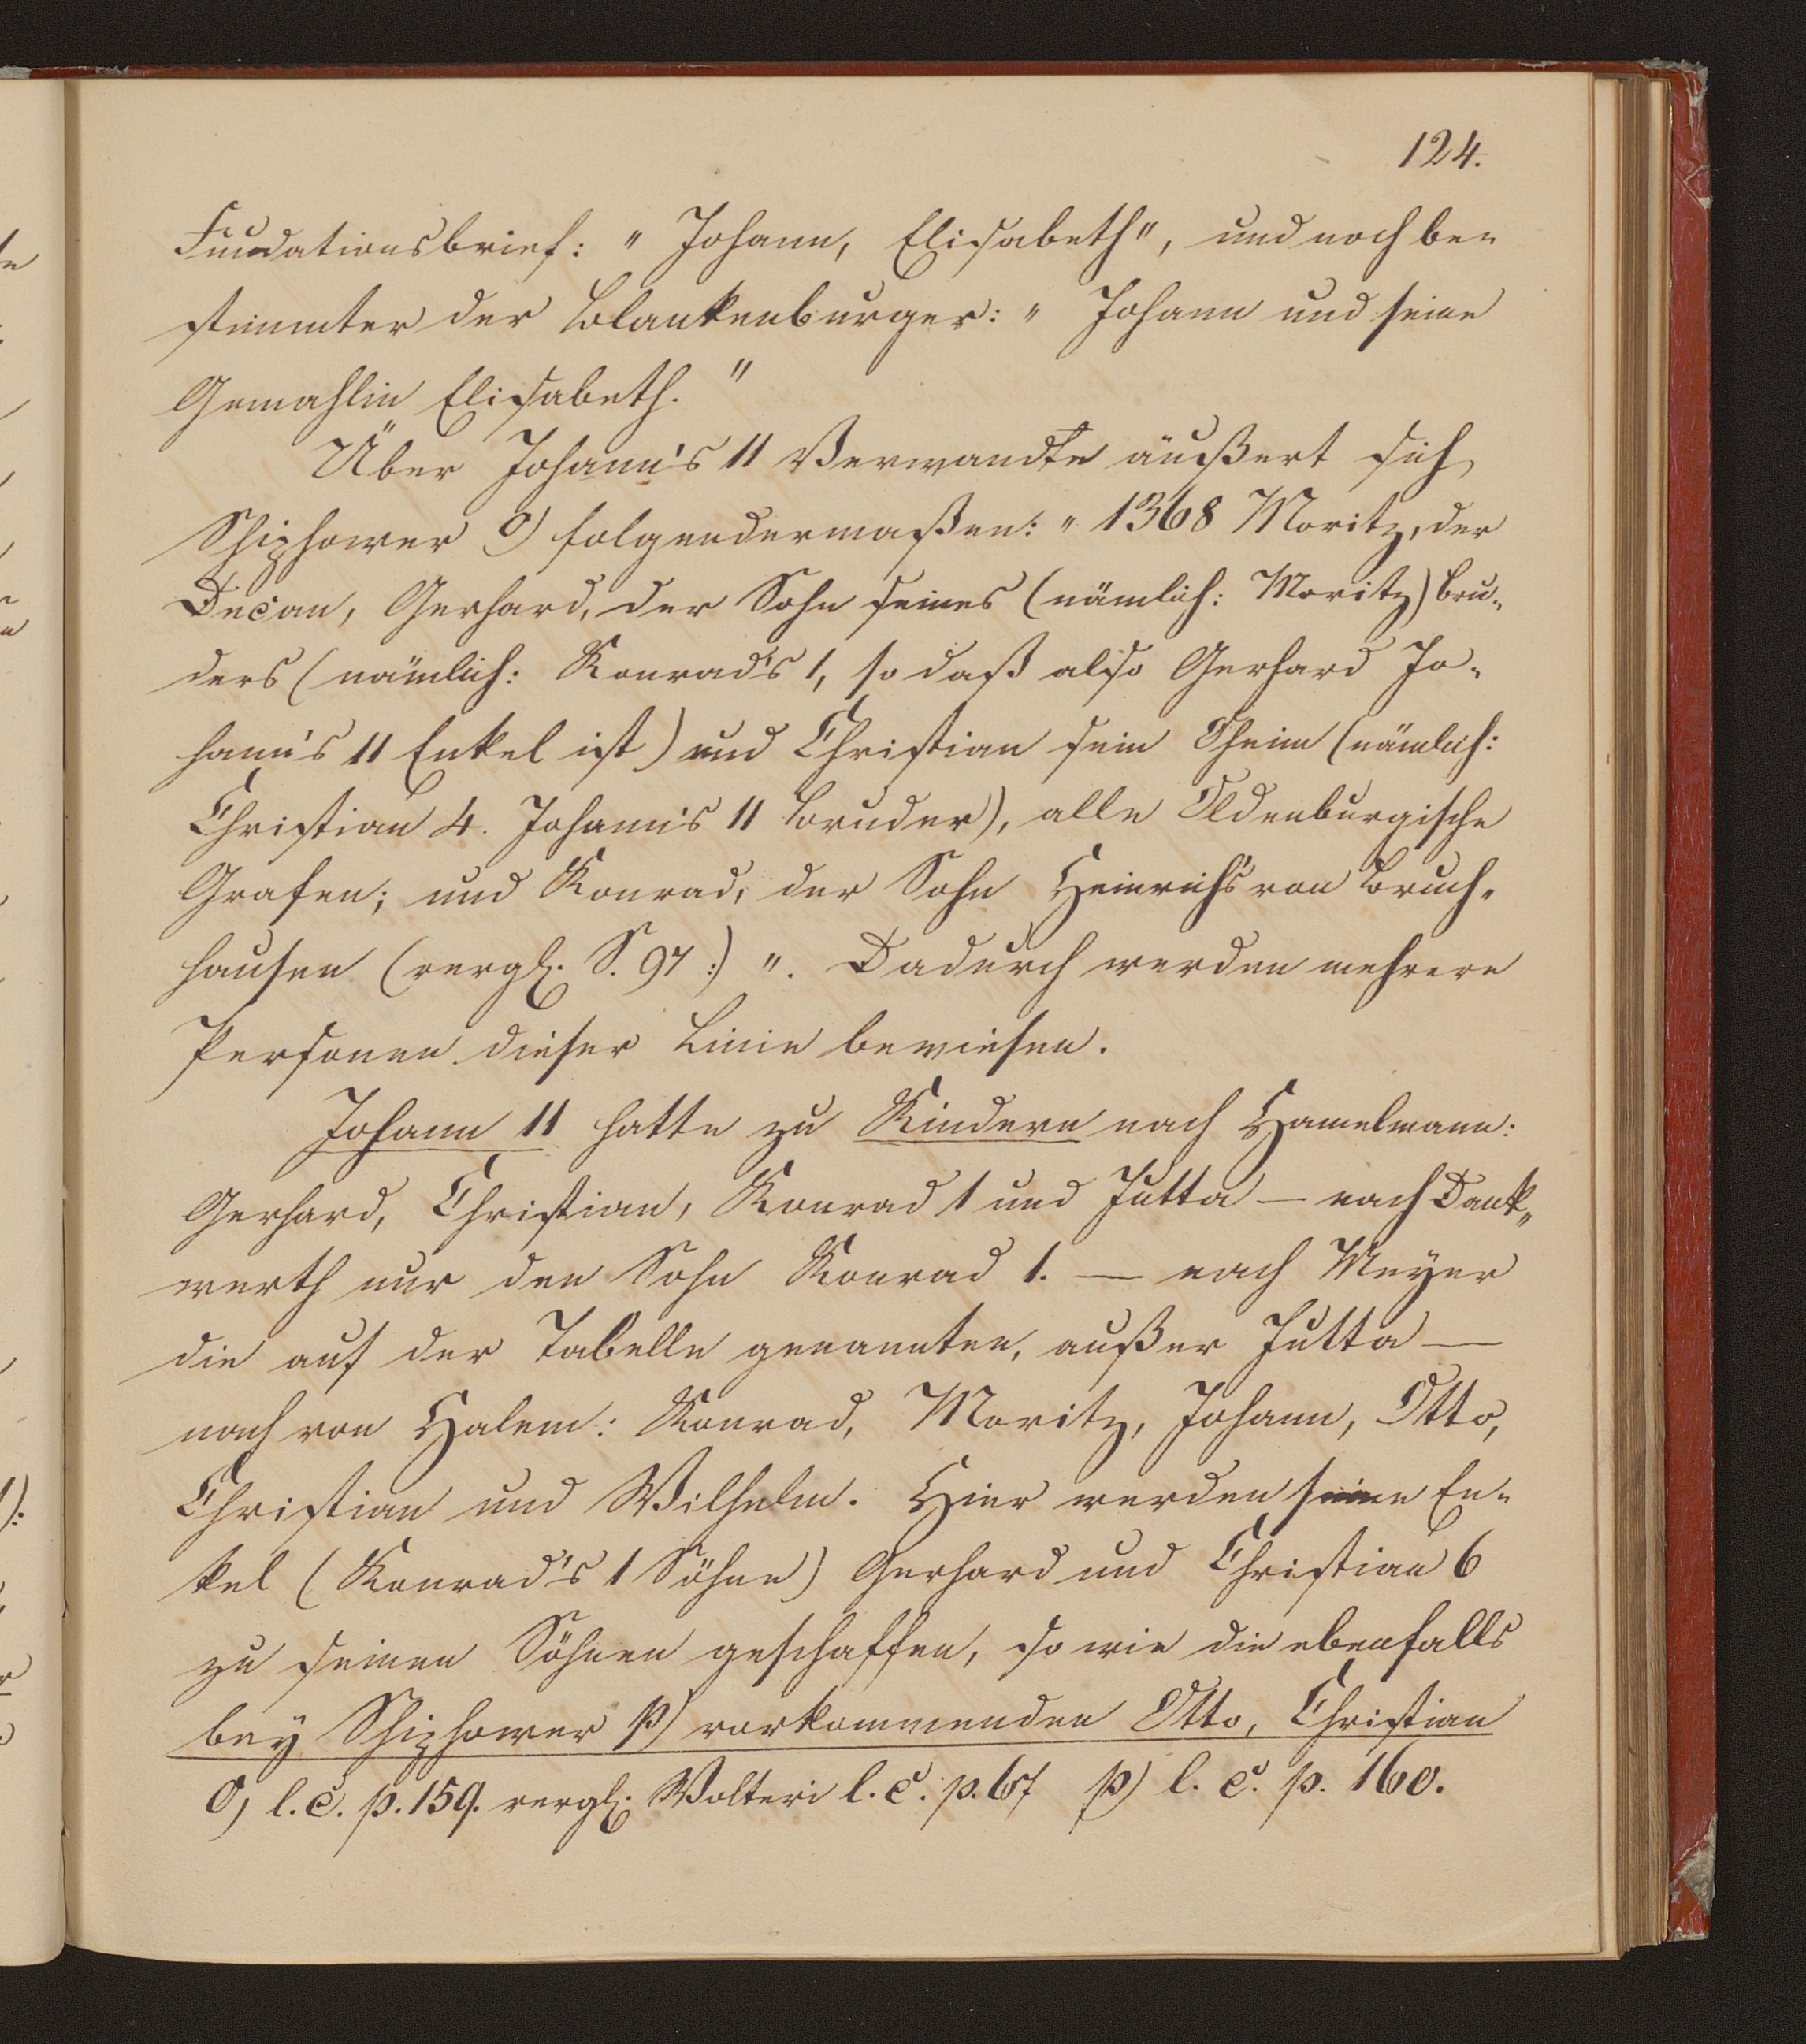 124.
Fundationsbrief: „ Johann, Elisabeth", und noch be-
stimmter der Blankenburger: „ Johann und seine
Gemahlin Elisabeth. "
Über Johann's 11 Verwandte äußert sich
Schiphower o) folgendermaßen: „ 1368 Moritz, der
Decan, Gerhard, der Sohn seines (nämlich: Moritz) Bru-
ders (nämlich: Konrad's 1, so daß also Gerhard Jo-
hann's 11 Enkel ist) und Christian sein Oheim (nämlich:
Christian 4. Johann's 11 Bruder), alle Oldenburgische
Grafen; und Konrad, der Sohn Heinrich's von Bruch-
hausen (vergl. S. 97 :) ". Dadurch werden mehrere
Personen dieser Linie bewiesen.
Johann 11 hatte zu Kindern nach Hamelmann:
Gerhard, Christian, Konrad 1 und Jutta — nach Dank-
werth nur den Sohn Konrad 1. — nach Meyer
die auf der Tabelle genannten, außer Jutta —
nach von Halem: Konrad, Moritz, Johann, Otto,
Christian und Wilhelm. Hier werden seine En-
kel (Konrad's 1 Söhne) Gerhard und Christian 6
zu seinen Söhnen geschaffen, so wie die ebenfalls
bey Schiphower p) vorkommenden Otto, Christian
o) l. c. p. 159. vergl. Wolteri l. c. p. 67 p) l. c. p. 160.